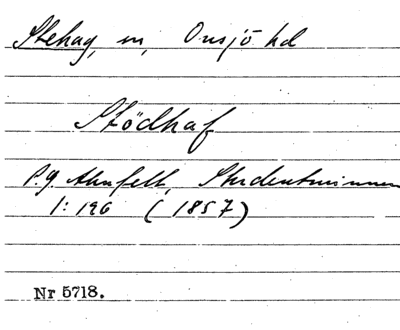 Stehag, sn, Onsjö hd
Stödhaf
P.g. Ahnfelt, Studentminnen
1: 196 (1857)
Nr 5718.